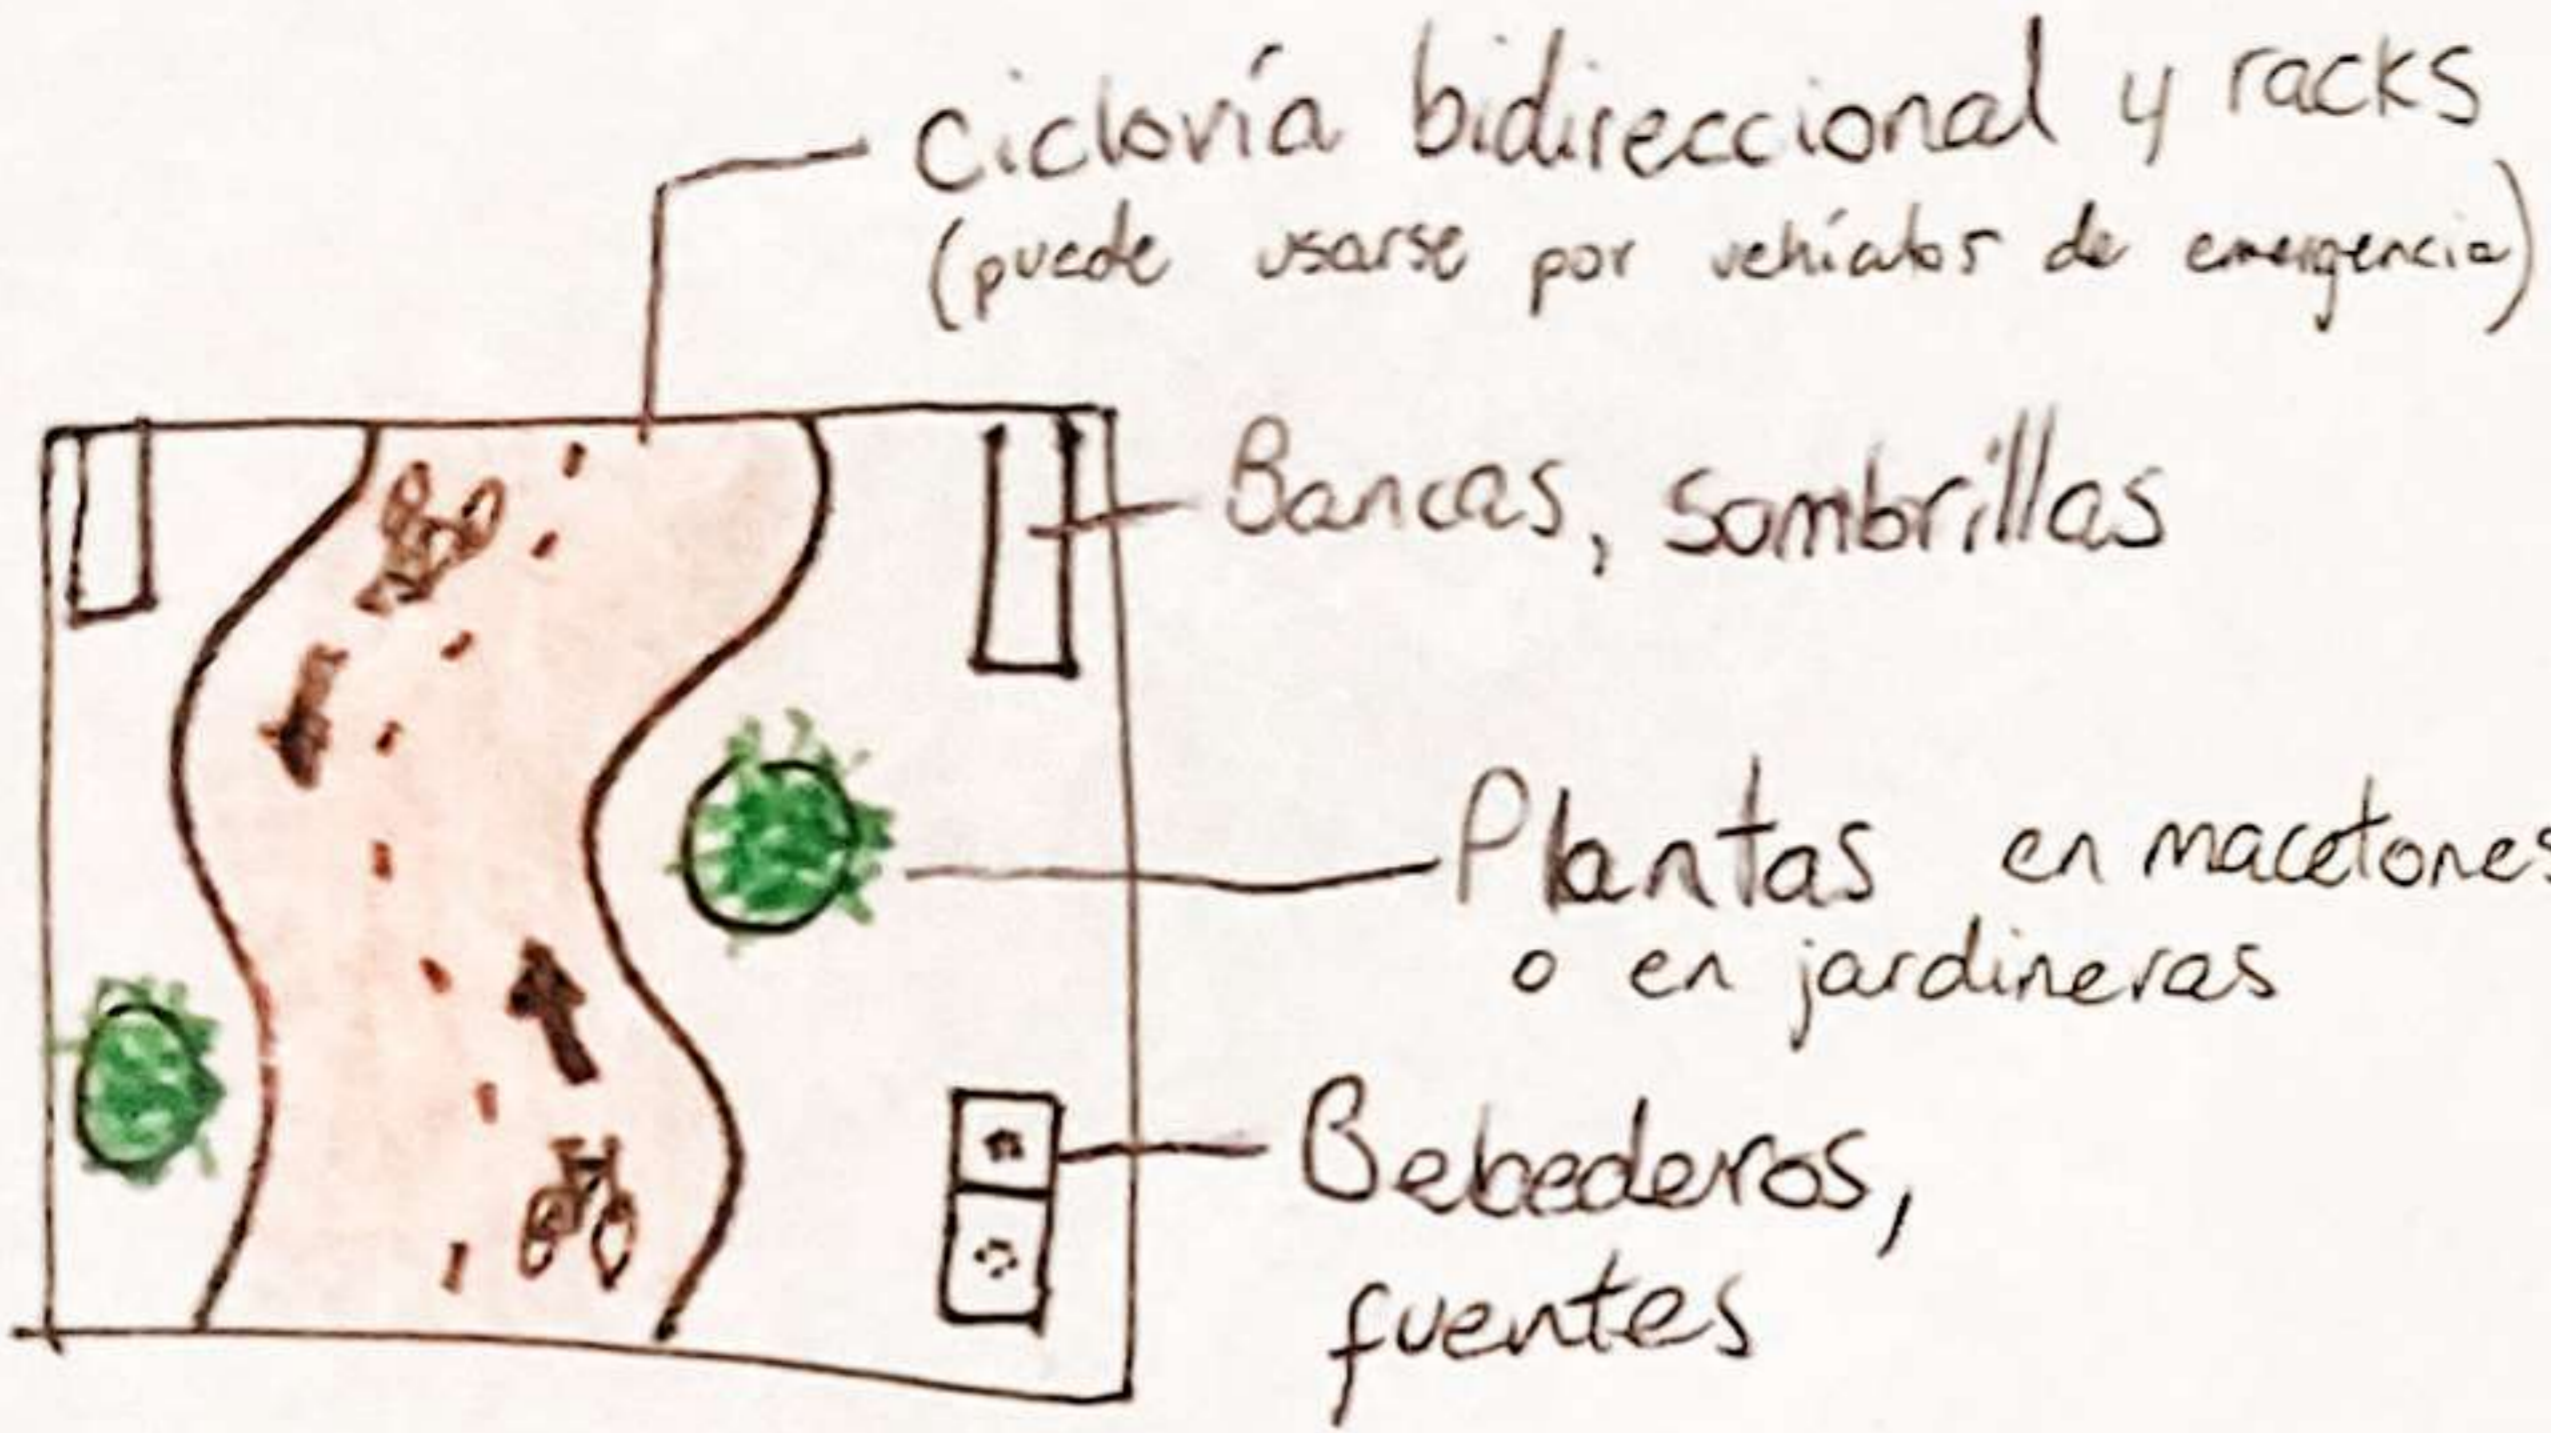 Ciclovía bidireccional y racks
(puede usarse por vehículos de emergencia)
Bancas, sombrillas
Plantas en macetones
o en jardineras
Bebederos,
fuentes